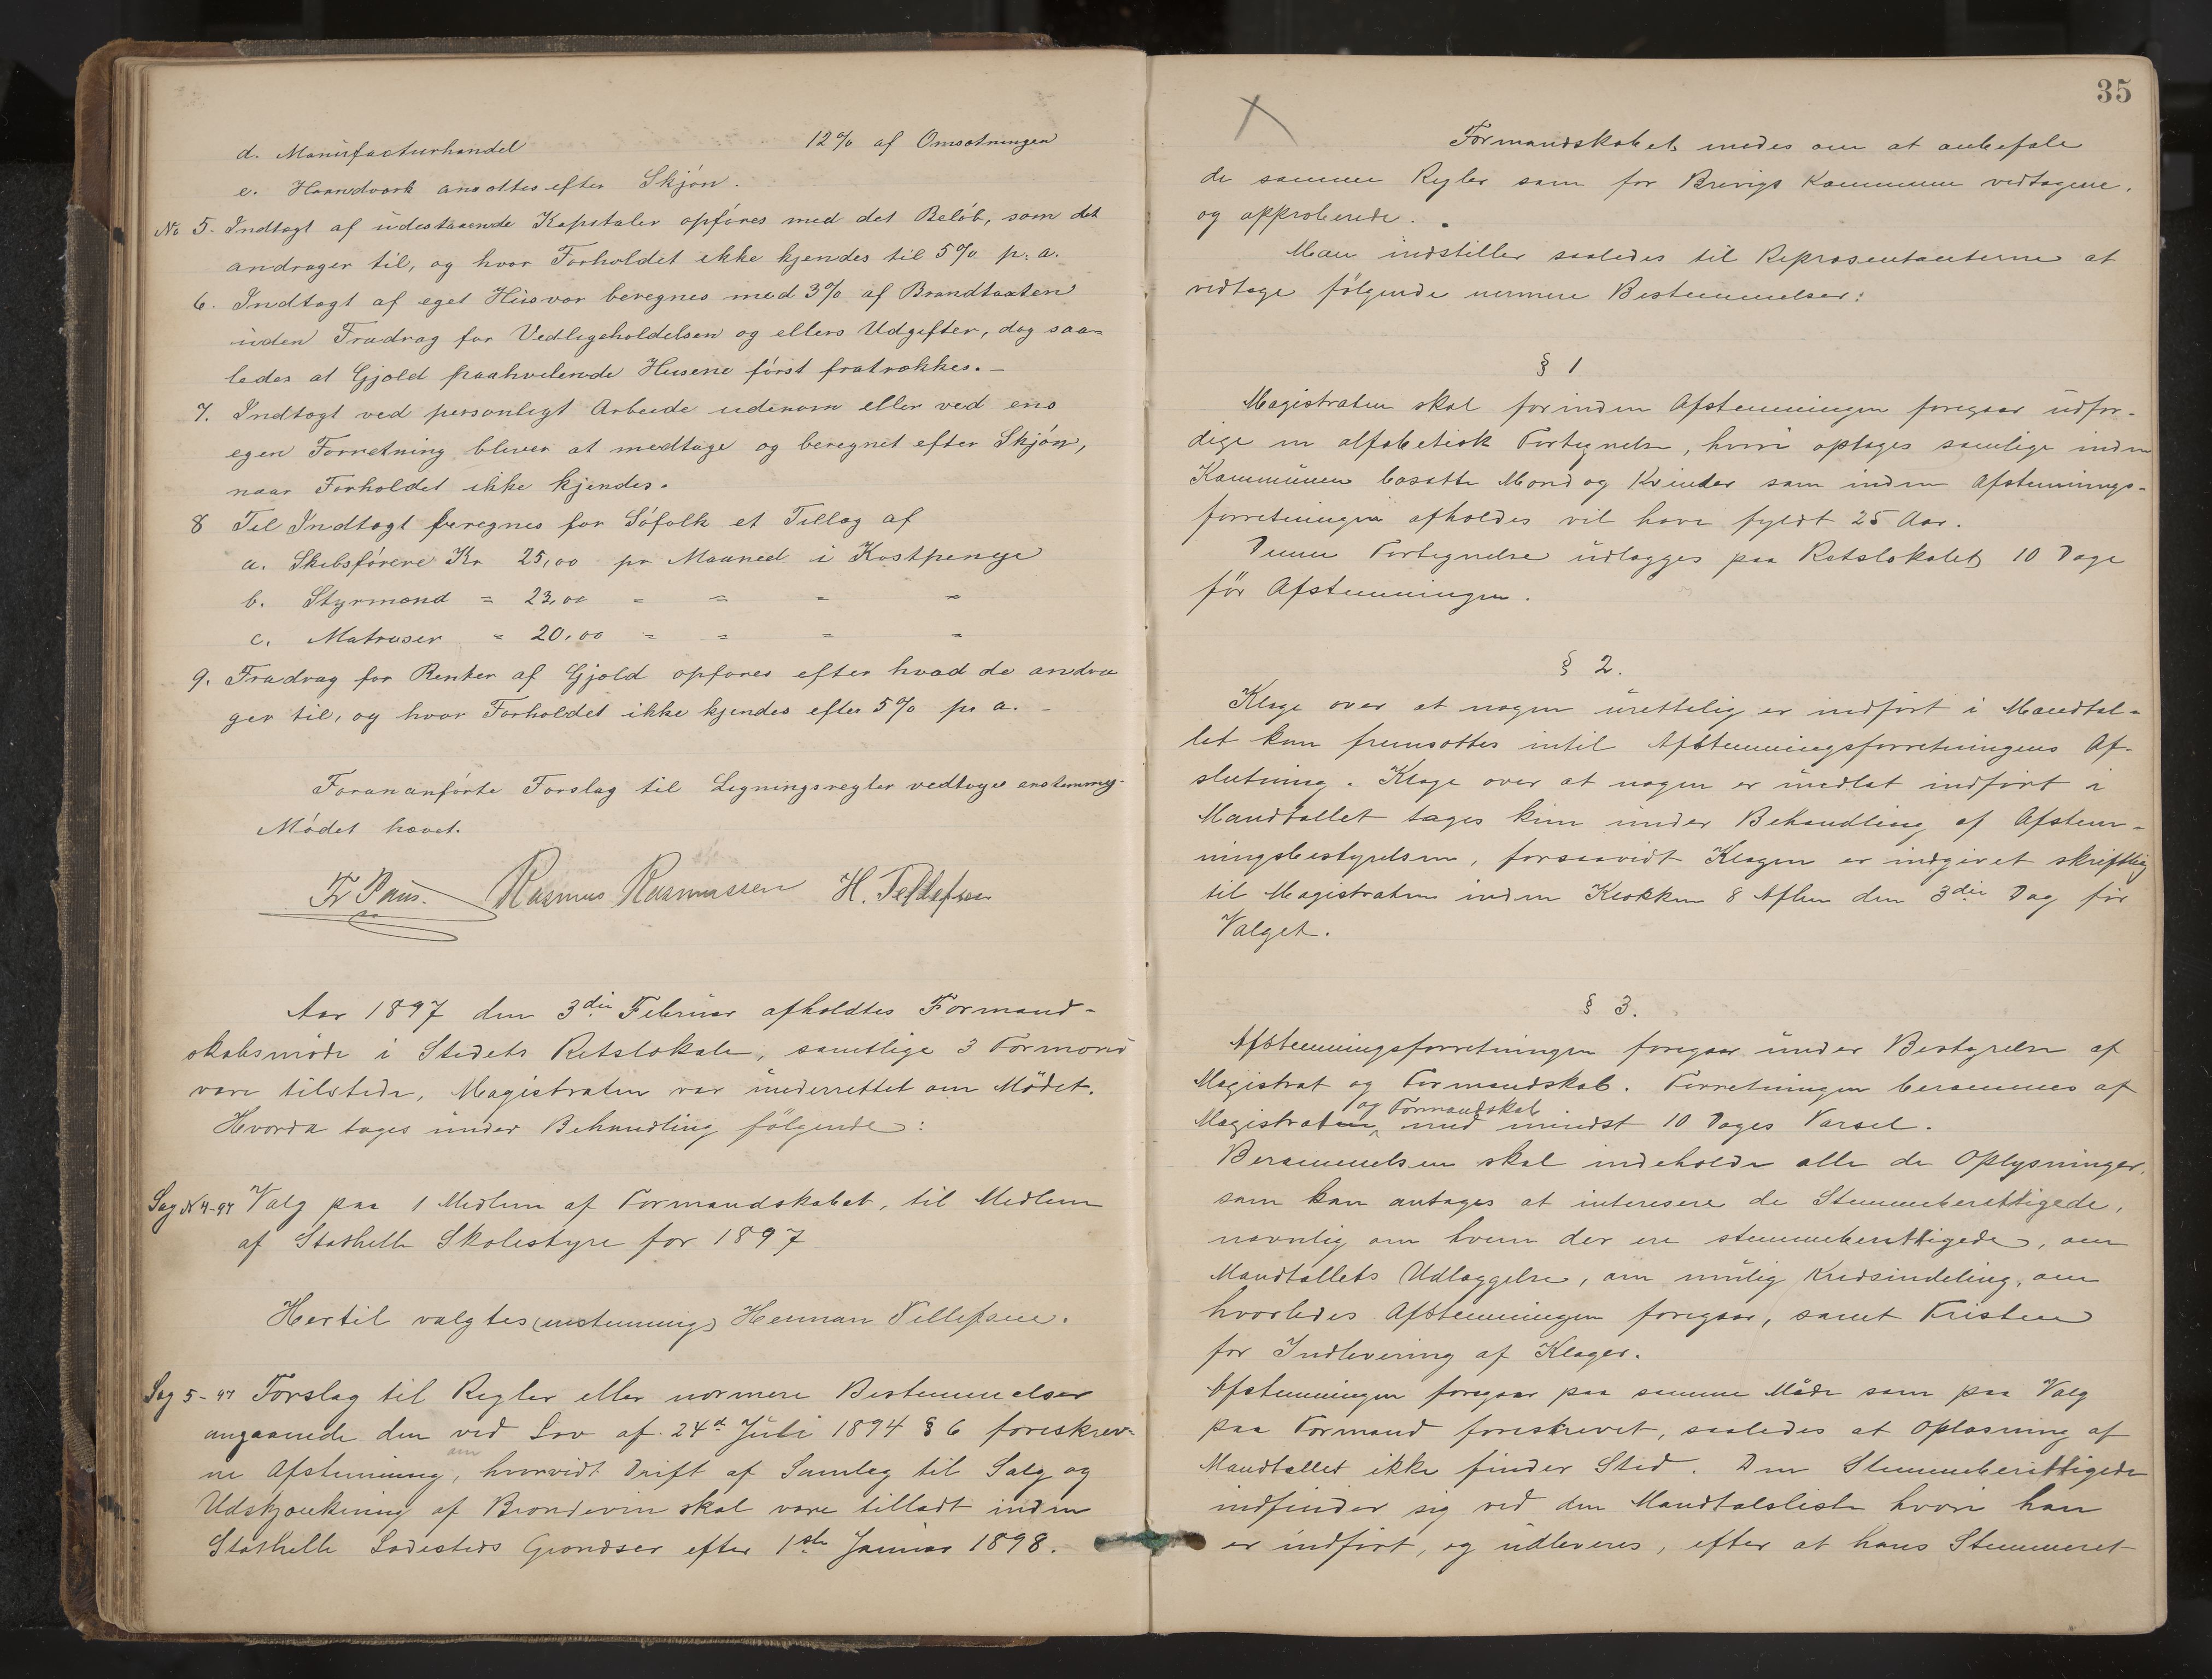 d. Manufacturhandel 12% af Omsætningen
e. Haandværk ansættes efter Skjøn.
No 5. Indtægt af udestaaende Kapitaler opføres med det Beløb, som det
andrager til, og hvor Forholdet ikke kjendes til 5% p. a.
6. Indtægt af eget Husvær beregnes med 3% af Brandtaxten
uden Fradrag for Vedligeholdelsen og ellers Udgifter, dog saa-
ledes at Gjæld paahvilende Husene først fratrækkes. -
7. Indtægt ved personligt Arbeide udenom eller ved ens
egen Forretning bliver at medtage og beregnet efter Skjøn,
naar Forholdet ikke kjendes.
8 Til Indtægt beregnes for Søfolk et Tillæg af
a. Skibsførere Kr 25,00 pr Maaned i Kostpenge
b. Styrmænd = 23,00 = = = =
c. Matroser = 20,00 = = = =
9. Fradrag for Renter af Gjæld opføres efter hvad de andra
ger til, og hvor Forholdet ikke kjendes efter 5% pr a. -
Forananførte Forslag til Ligningsregler vedtoges enstemmig.
Mødet hævet.
Fr Paus. Rasmus Rasmussen H. Tellefsen
Aar 1897 den 3die Februar afholdtes Formand-
skabsmøde i Stedets Retslokale, samtlige 3 Formænd
vare tilstede, Magistraten var underrettet om Mødet.
Hvorda toges under Behandling følgende:
Sag N 4-97 Valg paa 1 Medlem af Formandskabet, til Medlem
af Stathelle Skolestyre for 1897
Hertil valgtes (enstemmig) Herman Tellefsen.
Sag 5-97 Forslag til Regler eller nærmere Bestemmelser
angaaende den ved Lov af 24d Juli 1894 § 6 foreskrev-
ne Afstemning, om hvorvidt Drift af Samlag til Salg og
Udskjænkning af Brændevin skal være tilladt inden
Stathelle Ladesteds Grændser efter 1ste Januar 1898.
35
Formandskabet enedes om at anbefale
de samme Regler som for Brevigs Kommune vedtagne,
og approberede.
Man indstiller saaledes til Repræsentanterne at
vedtage følgende nærmere Bestemmelser:
§ 1
Magistraten skal forinden Afstemningen foregaar udfær-
dige en alfabetisk Fortegnelse, hvori optages samtlige inden
Kommunen bosatte Mænd og Kvinder som inden Afstemnings-
forretningen afholdes vil have fyldt 25 Aar.
Denne Fortegnelse udlægges paa Retslokalet 10 Dage
før Afstemningen.
§ 2.
Klage over at nogen urettelig er indført i Mandtal-
let kan fremsættes indtil Afstemningsforretningens Af-
slutning. Klage over at nogen er undladt indført i
Mandtallet tages kun under Behandling af Afstem-
ningsbestyrelsen, forsaavidt Klagen er indgivet skriftlig
til Magistraten inden Klokken 8 Aften den 3die Dag før
Valget.
§ 3.
Afstemningsforretningen foregaar under Bestyrelse af
Magistrat og Formandskab. Forretningen berammes af
Magistraten og Formandskab med mindst 10 Dages Varsel.
Berammelsen skal indeholde alle de Oplysninger,
som kan antages at interesere de Stemmeberettigede,
navnlig om hvem der ere stemmeberettigede, om
Mandtallets Udlæggelse, om mulig Kredsindeling, om
hvorledes Afstemningen foregaar, samt Fristen
for Indlevering af Klager.
Afstemningen foregaar paa samme Måde som paa Valg
paa Formænd foreskrevet, saaledes at Oplæsning af
Mandtallet ikke finder Sted. Den Stemmeberettigede
indfinder sig ved den Mandtalsliste hvori han
er indført, og udleveres, efter at hans Stemmeret